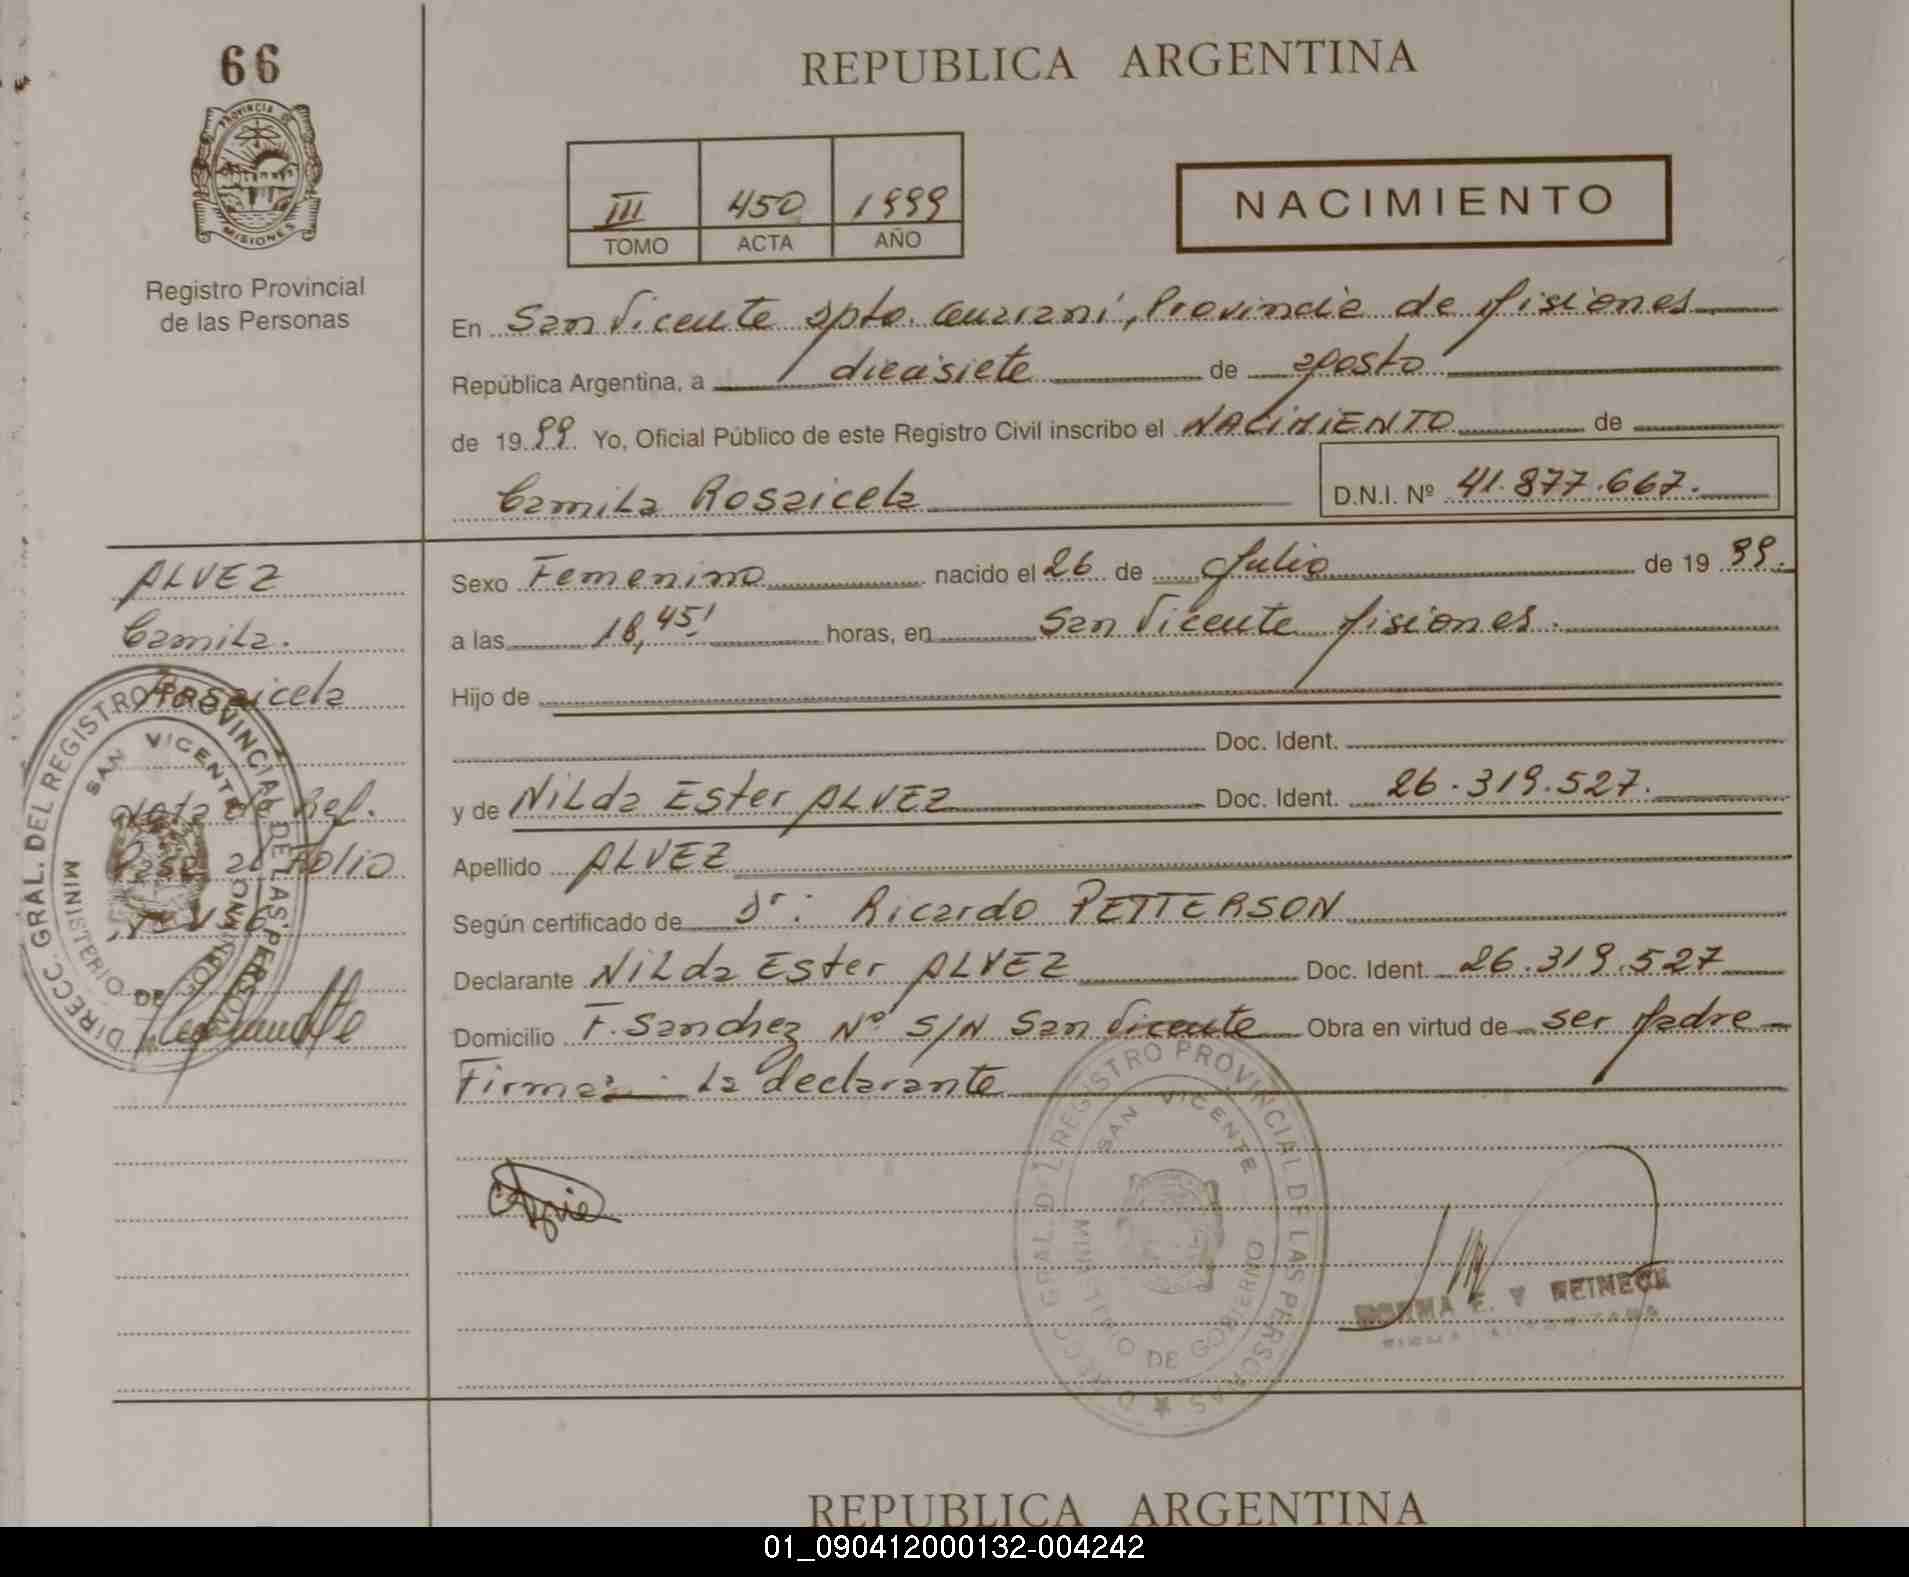 66
REPUBLICA ARGENTINA
PROVINCIA DE
MISIONES
Registro Provincial
de las Personas
III 450 1999
TOMO ACTA AÑO
NACIMIENTO
En San Vicente Dpto. Guaraní, Provincia de Misiones
República Argentina, a diecisiete de agosto
de 1999. Yo, Oficial Público de este Registro Civil inscribo el NACIMIENTO de
Camila Rosaicela D.N.I. Nº 41.877.667.
ALVEZ
Camila.
Rosaicela
Nota de Ref.
Pase al Folio
Sexo Femenino nacido el 26 de Julio de 1999.
a las 18,45' horas, en San Vicente Misiones.
Hijo de
Doc. Ident.
y de Nilda Ester ALVEZ Doc. Ident. 26.319.527.
Apellido ALVEZ
Según certificado de Dr: Ricardo PETTERSON
Declarante Nilda Ester ALVEZ Doc. Ident. 26.319.527
Domicilio F. Sanchez Nº S/N San Vicente Obra en virtud de ser Madre
Firma: La declarante
DIRECC. GRAL. DEL REGISTRO PROVINCIAL DE LAS PERSONAS
SAN VICENTE
MINISTERIO DE GOBIERNO
DIRECC. GRAL. DEL REGISTRO PROVINCIAL DE LAS PERSONAS
SAN VICENTE
MINISTERIO DE GOBIERNO
NORMA E. V REINECK
REPUBLICA ARGENTINA
01_090412000132-004242